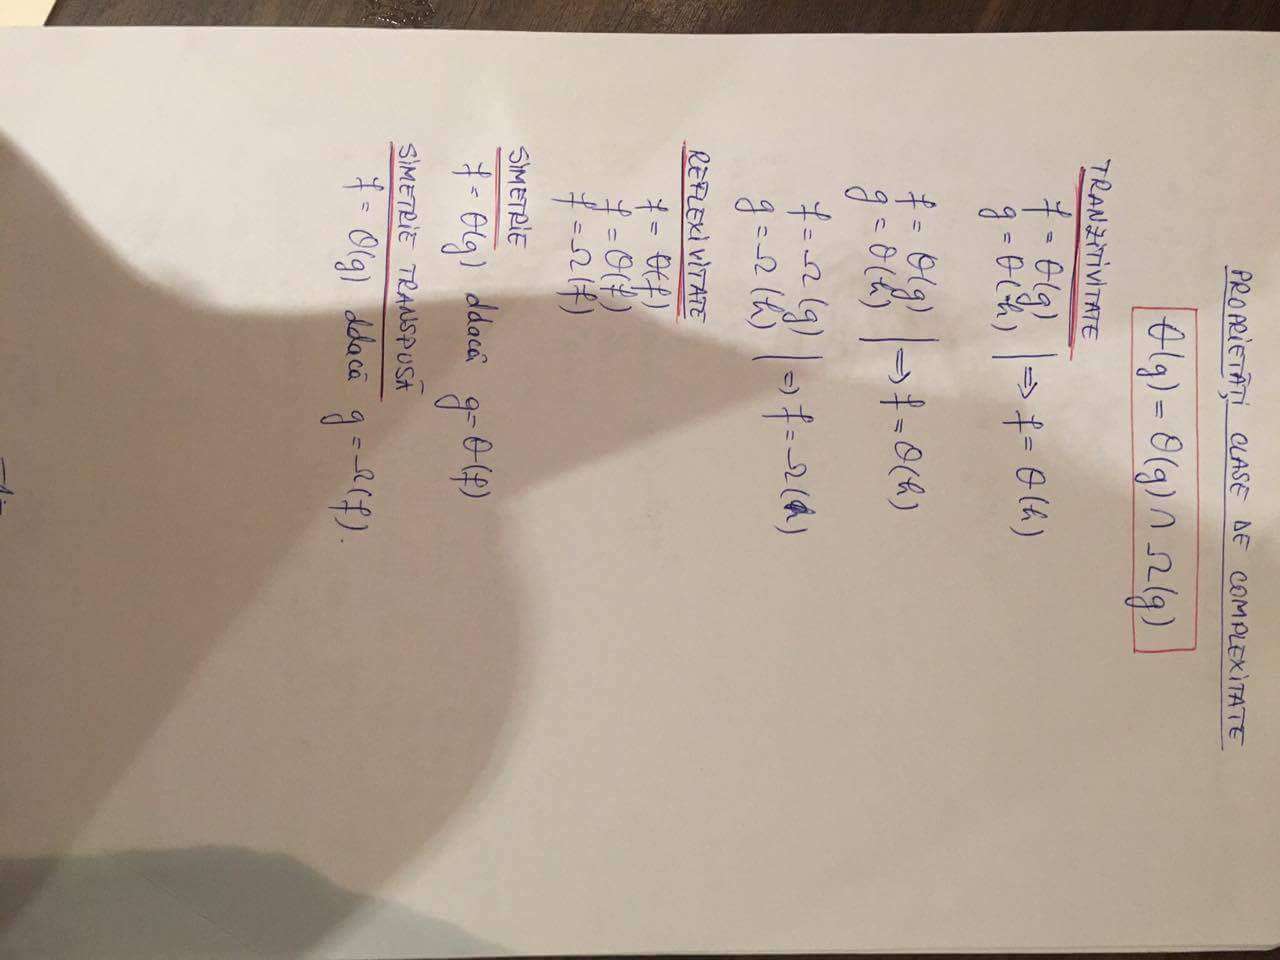 PROPRIETĂȚI CLASE DE COMPLEXITATE
Θ(g) = O(g) ∩ Ω(g)
TRANZITIVITATE
f = Θ(g)
g = Θ(h) | => f = Θ(h)
f = O(g)
g = O(h) | => f = O(h)
f = Ω(g)
g = Ω(h) | => f = Ω(h)
REFLEXIVITATE
f = Θ(f)
f = O(f)
f = Ω(f)
SIMETRIE
f = Θ(g) ddacă g = Θ(f)
SIMETRIE TRANSPUSĂ
f = O(g) ddacă g = Ω(f).
-1-